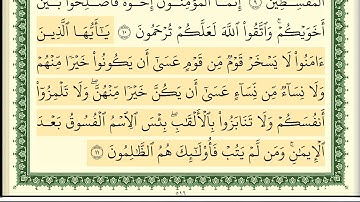 ٱلْمُقْسِطِينَ ٩ إِنَّمَا ٱلْمُؤْمِنُونَ إِخْوَةٌ فَأَصْلِحُوا۟ بَيْنَ
أَخَوَيْكُمْ ۚ وَٱتَّقُوا۟ ٱللَّهَ لَعَلَّكُمْ تُرْحَمُونَ ١٠ يَـٰٓأَيُّهَا ٱلَّذِينَ
ءَامَنُوا۟ لَا يَسْخَرْ قَوْمٌ مِّن قَوْمٍ عَسَىٰٓ أَن يَكُونُوا۟ خَيْرًا مِّنْهُمْ
وَلَا نِسَآءٌ مِّن نِّسَآءٍ عَسَىٰٓ أَن يَكُنَّ خَيْرًا مِّنْهُنَّ ۖ وَلَا تَلْمِزُوٓا۟
أَنفُسَكُمْ وَلَا تَنَابَزُوا۟ بِٱلْأَلْقَـٰبِ ۖ بِئْسَ ٱلِٱسْمُ ٱلْفُسُوقُ بَعْدَ
ٱلْإِيمَـٰنِ ۚ وَمَن لَّمْ يَتُبْ فَأُو۟لَـٰٓئِكَ هُمُ ٱلظَّـٰلِمُونَ ١١
٥١٦